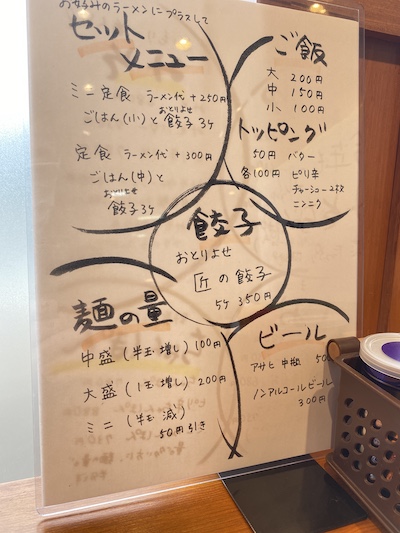 お好みのラーメンにプラスして
セット
メニュー
ミニ定食 ラーメン代+250円
ごはん(小)と おとりよせ 餃子3ケ
定食 ラーメン代+300円
ごはん(中)と
おとりよせ
餃子3ケ
ご飯
大 200円
中 150円
小 100円
トッピング
50円 バター
各100円 ピリ辛
チャーシュー2枚
ニンニク
餃子
おとりよせ
匠の餃子
5ケ 350円
麺の量
中盛(半玉増し)100円
大盛(1玉増し)200円
ミニ(半玉減)
50円引き
ビール
アサヒ 中瓶
ノンアルコールビール
300円